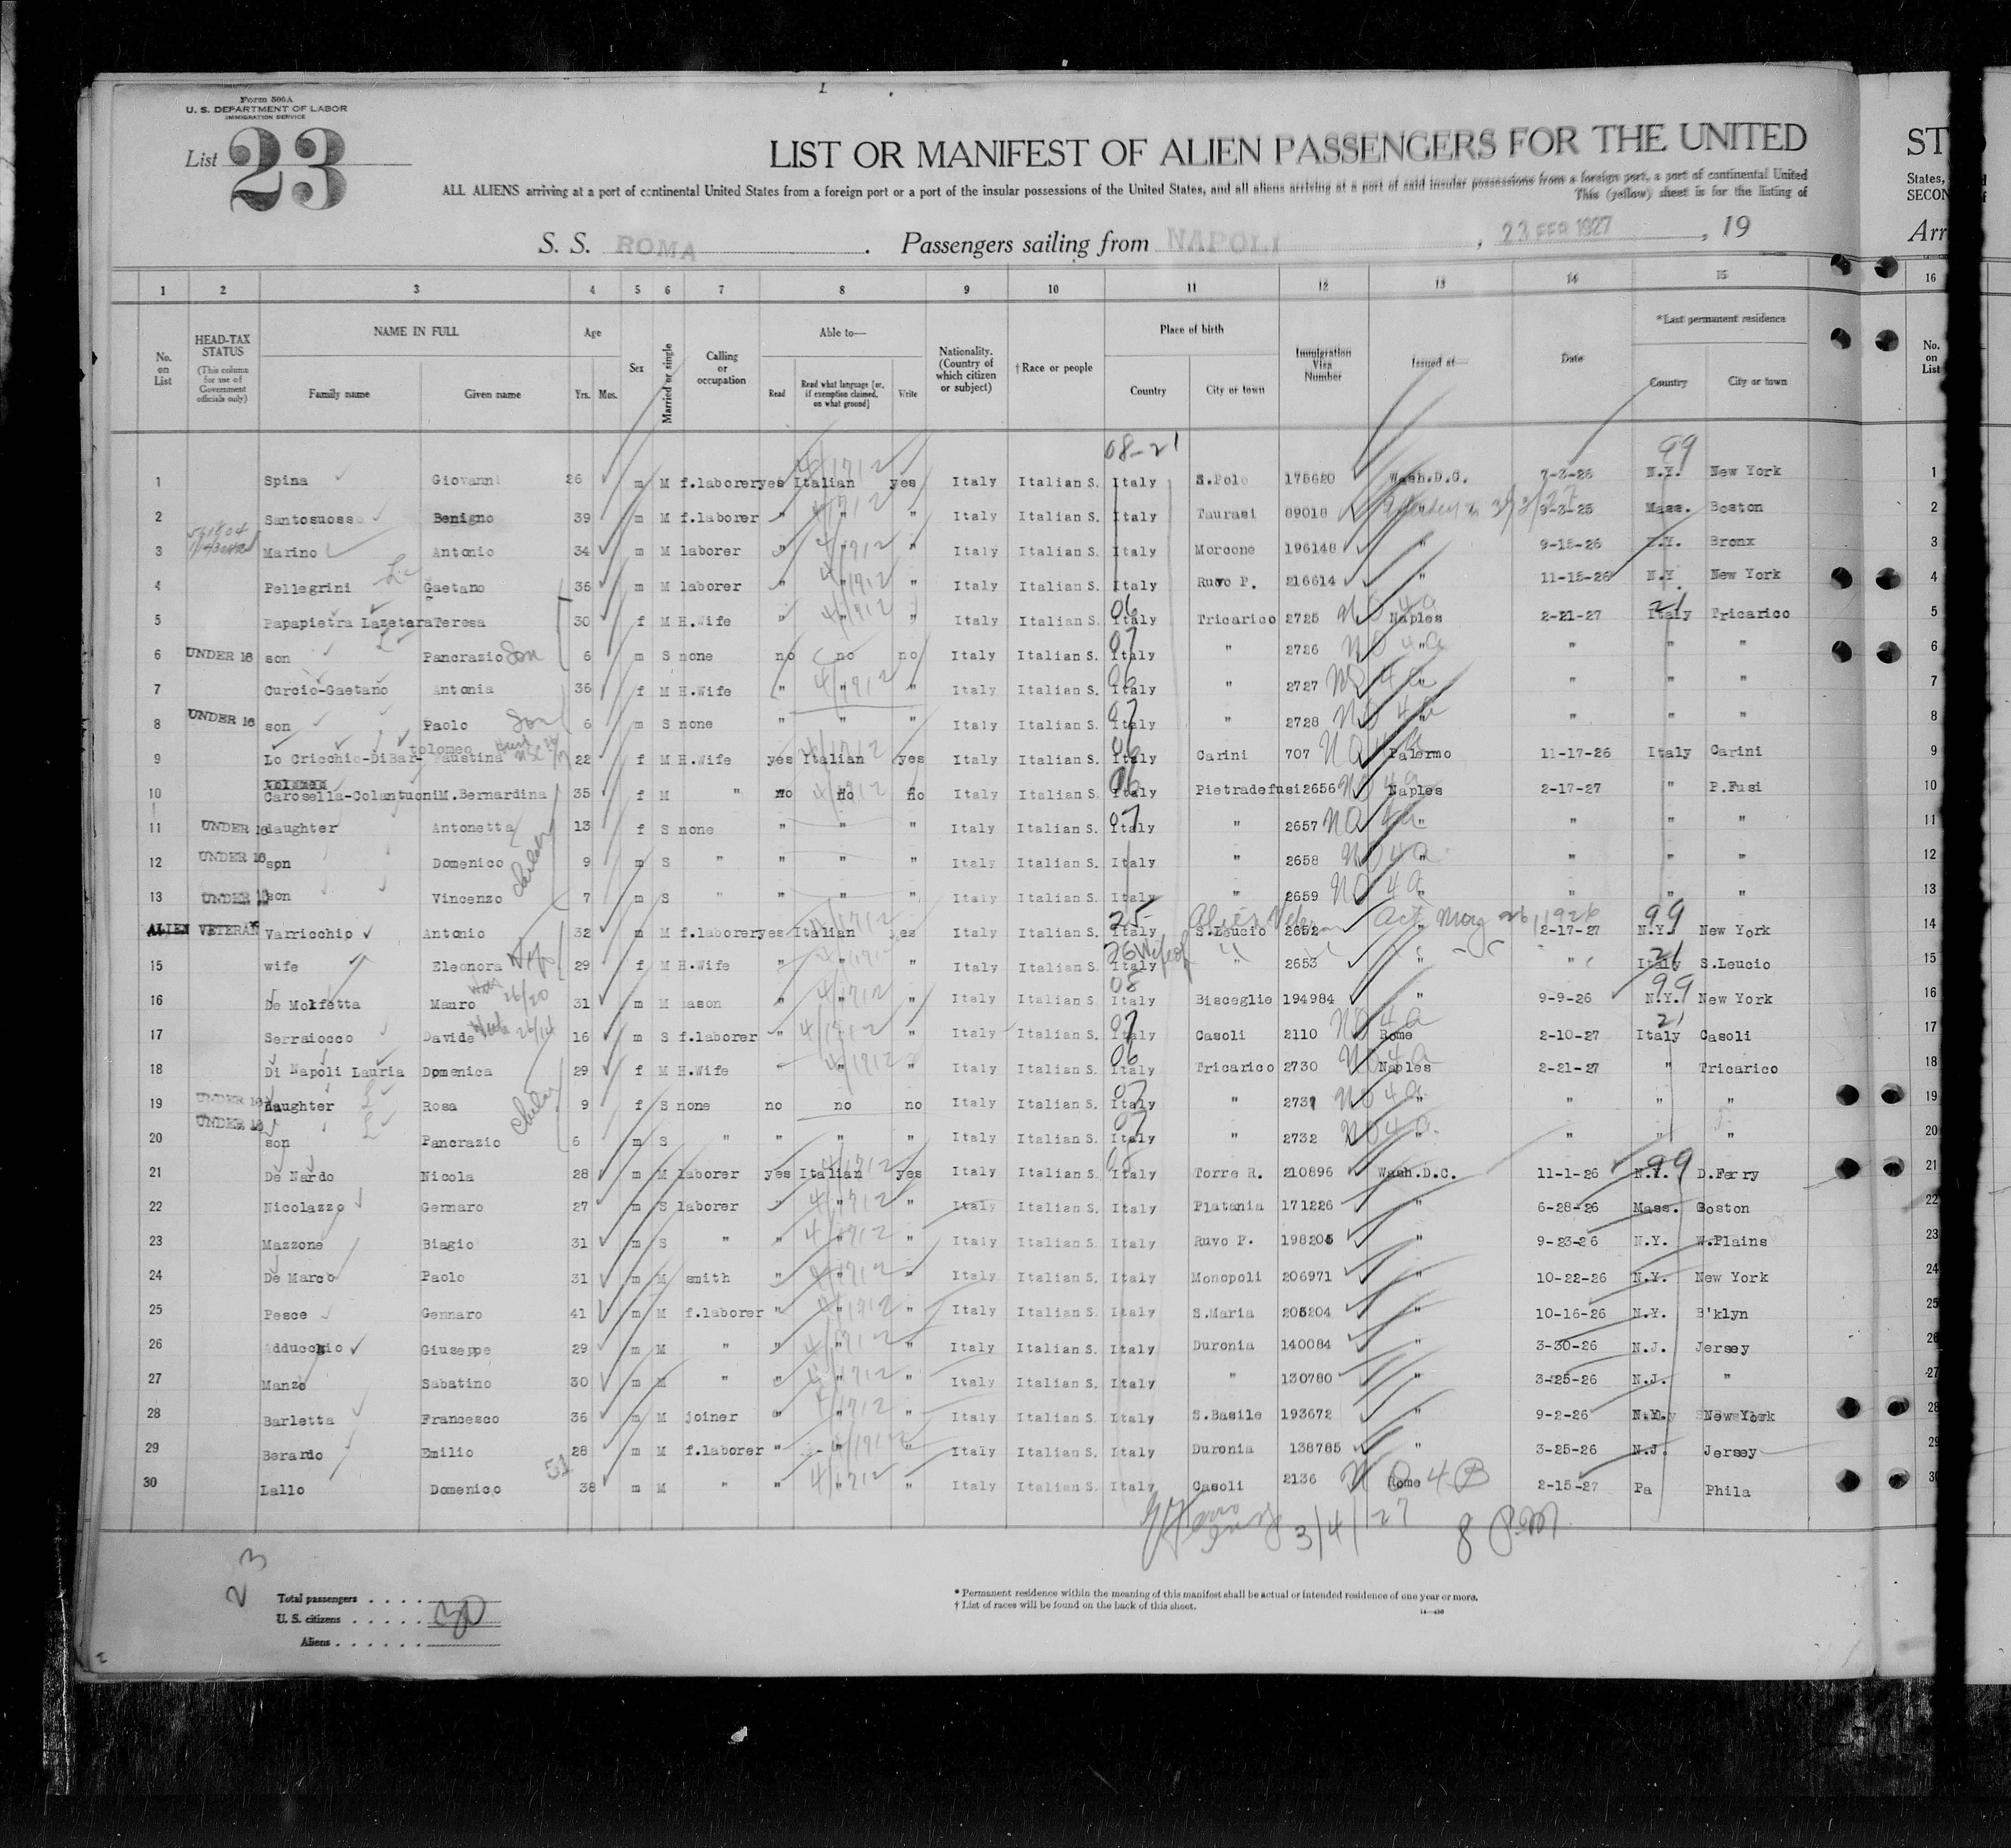 Form 500A
U. S. DEPARTMENT OF LABOR
IMMIGRATION SERVICE
List 23
LIST OR MANIFEST OF ALIEN PASSENGERS FOR THE UNITED
ALL ALIENS arriving at a port of continental United States from a foreign port or a port of the insular possessions of the United States, and all aliens arriving at a port of said insular possessions from a foreign port, a port of continental United
This (yellow) sheet is for the listing of
S. S. ROMA. Passengers sailing from NAPOLI, 23 FEB 1927, 19
ST
States,
SECON
Arr
1 2 3 4 5 6 7 8 9 10 11 12 13 14 15 16
No. on List
HEAD-TAX STATUS (This column for use of Government officials only)
NAME IN FULL Family name Given name
Age Yrs. Mos.
Sex
Married or single
Calling or occupation
Able to— Read Read what language [or, if exemption claimed, on what ground] Write
Nationality. (Country of which citizen or subject)
† Race or people
Place of birth Country City or town
Immigration Visa Number
Issued at—
Date
*Last permanent residence Country City or town
No. on List
08-21 99
1 Spina Giovanni 26 m M f.laborer yes Italian 4/1912 yes Italy Italian S. Italy S.Polo 175620 Wash.D.C. 7-3-26 N.Y. New York 1
2 Santosuosso Benigno 39 m M f.laborer " " 4/1912 " Italy Italian S. Italy Taurasi 89018 " 9-3-25 Mass. Boston 2
3 Marino Antonio 34 m M laborer " " 4/1912 " Italy Italian S. Italy Morcone 196148 " 9-15-26 N.Y. Bronx 3
4 Pellegrini Gaetano 36 m M laborer " " 4/1912 " Italy Italian S. Italy Ruvo P. 216614 " 11-15-26 N.Y. New York 4
5 Papapietra Lazetara Teresa 30 f M H.Wife " " 4/1912 " Italy Italian S. 06 Italy Tricarico 2725 NQ 4a Naples 2-21-27 21 Italy Tricarico 5
6 UNDER 16 son Pancrazio Son 6 m S none no no no Italy Italian S. 07 Italy " 2726 NQ 4a " " " " 6
7 Curcio-Gaetano Antonia 36 f M H.Wife " " 4/1912 " Italy Italian S. 06 Italy " 2727 NQ 4a " " " " 7
8 UNDER 16 son Paolo Son 6 m S none " " " Italy Italian S. 07 Italy " 2728 NQ 4a " " " " 8
9 Lo Cricchio-DiBar-tolomeo Faustina 22 f M H.Wife yes Italian 4/1912 yes Italy Italian S. 06 Italy Carini 707 NQ 4a Palermo 11-17-26 Italy Carini 9
10 Carosella-Colantuoni M.Bernardina 35 f M " no no 4/1912 no Italy Italian S. 06 Italy Pietradefusi 2656 NQ 4a Naples 2-17-27 " P.Fusi 10
11 UNDER 16 daughter Antonetta 13 f S none " " " Italy Italian S. 07 Italy " 2657 NQ 4a " " " " 11
12 UNDER 16 son Domenico 9 m S " " " " Italy Italian S. Italy " 2658 NQ 4a " " " " 12
13 UNDER 16 son Vincenzo 7 m S " " " " Italy Italian S. Italy " 2659 NQ 4a " " " " 13
14 ALIEN VETERAN Varricchio Antonio 32 m M f.laborer yes Italian 4/1912 yes Italy Italian S. 25 Italy Alien Veteran S.Leucio 2652 Act May 26, 1926 2-17-27 99 N.Y. New York 14
15 wife Eleonora Wife 29 f M H.Wife " " " Italy Italian S. 26 Wife of Italy " 2653 " " 21 Italy S.Leucio 15
16 De Molfetta Mauro 31 m M mason " " 4/1912 " Italy Italian S. 08 Italy Bisceglie 194984 " 9-9-26 99 N.Y. New York 16
17 Serraiocco Davide 16 m S f.laborer " 4/1912 " " Italy Italian S. 07 Italy Casoli 2110 NQ 4a Rome 2-10-27 21 Italy Casoli 17
18 Di Napoli Lauria Domenica 29 f M H.Wife " " 4/1912 " Italy Italian S. 06 Italy Tricarico 2730 NQ 4a Naples 2-21-27 " Tricarico 18
19 UNDER 16 daughter Rosa 9 f S none no no no Italy Italian S. 07 Italy " 2731 NQ 4a " " " " 19
20 UNDER 16 son Pancrazio 6 m S " " " " Italy Italian S. 07 Italy " 2732 NQ 4a " " " " 20
21 De Nardo Nicola 28 m M laborer yes Italian 4/1912 yes Italy Italian S. 08 Italy Torre R. 210896 Wash.D.C. 11-1-26 N.Y. 99 D.Ferry 21
22 Nicolazzo Gennaro 27 m S laborer " " 4/1912 " Italy Italian S. Italy Platania 171226 " 6-28-26 Mass. Boston 22
23 Mazzone Biagio 31 m S " " " 4/1912 " Italy Italian S. Italy Ruvo P. 198205 " 9-23-26 N.Y. W.Plains 23
24 De Marco Paolo 31 m M smith " " 4/1912 " Italy Italian S. Italy Monopoli 206971 " 10-22-26 N.Y. New York 24
25 Pesce Gennaro 41 m M f.laborer " " 4/1912 " Italy Italian S. Italy S.Maria 205204 " 10-16-26 N.Y. B'klyn 25
26 Adducchio Giuseppe 29 m M " " " 4/1912 " Italy Italian S. Italy Duronia 140084 " 3-30-26 N.J. Jersey 26
27 Manzo Sabatino 30 m M " " " 4/1912 " Italy Italian S. Italy " 130780 " 3-25-26 N.J. " 27
28 Barletta Francesco 36 m M joiner " " 4/1912 " Italy Italian S. Italy S.Basile 193672 " 9-2-26 N.Y. New York 28
29 Berardo Emilio 28 m M f.laborer " " 4/1912 " Italy Italian S. Italy Duronia 138785 " 3-25-26 N.J. Jersey 29
30 Lallo Domenico 51 38 m M " " " 4/1912 " Italy Italian S. Italy Casoli 2136 NQ 4B Rome 2-15-27 Pa Phila 30
3/4/27 8 P.M.
23
Total passengers
U. S. citizens 30
Aliens
* Permanent residence within the meaning of this manifest shall be actual or intended residence of one year or more.
† List of races will be found on the back of this sheet.